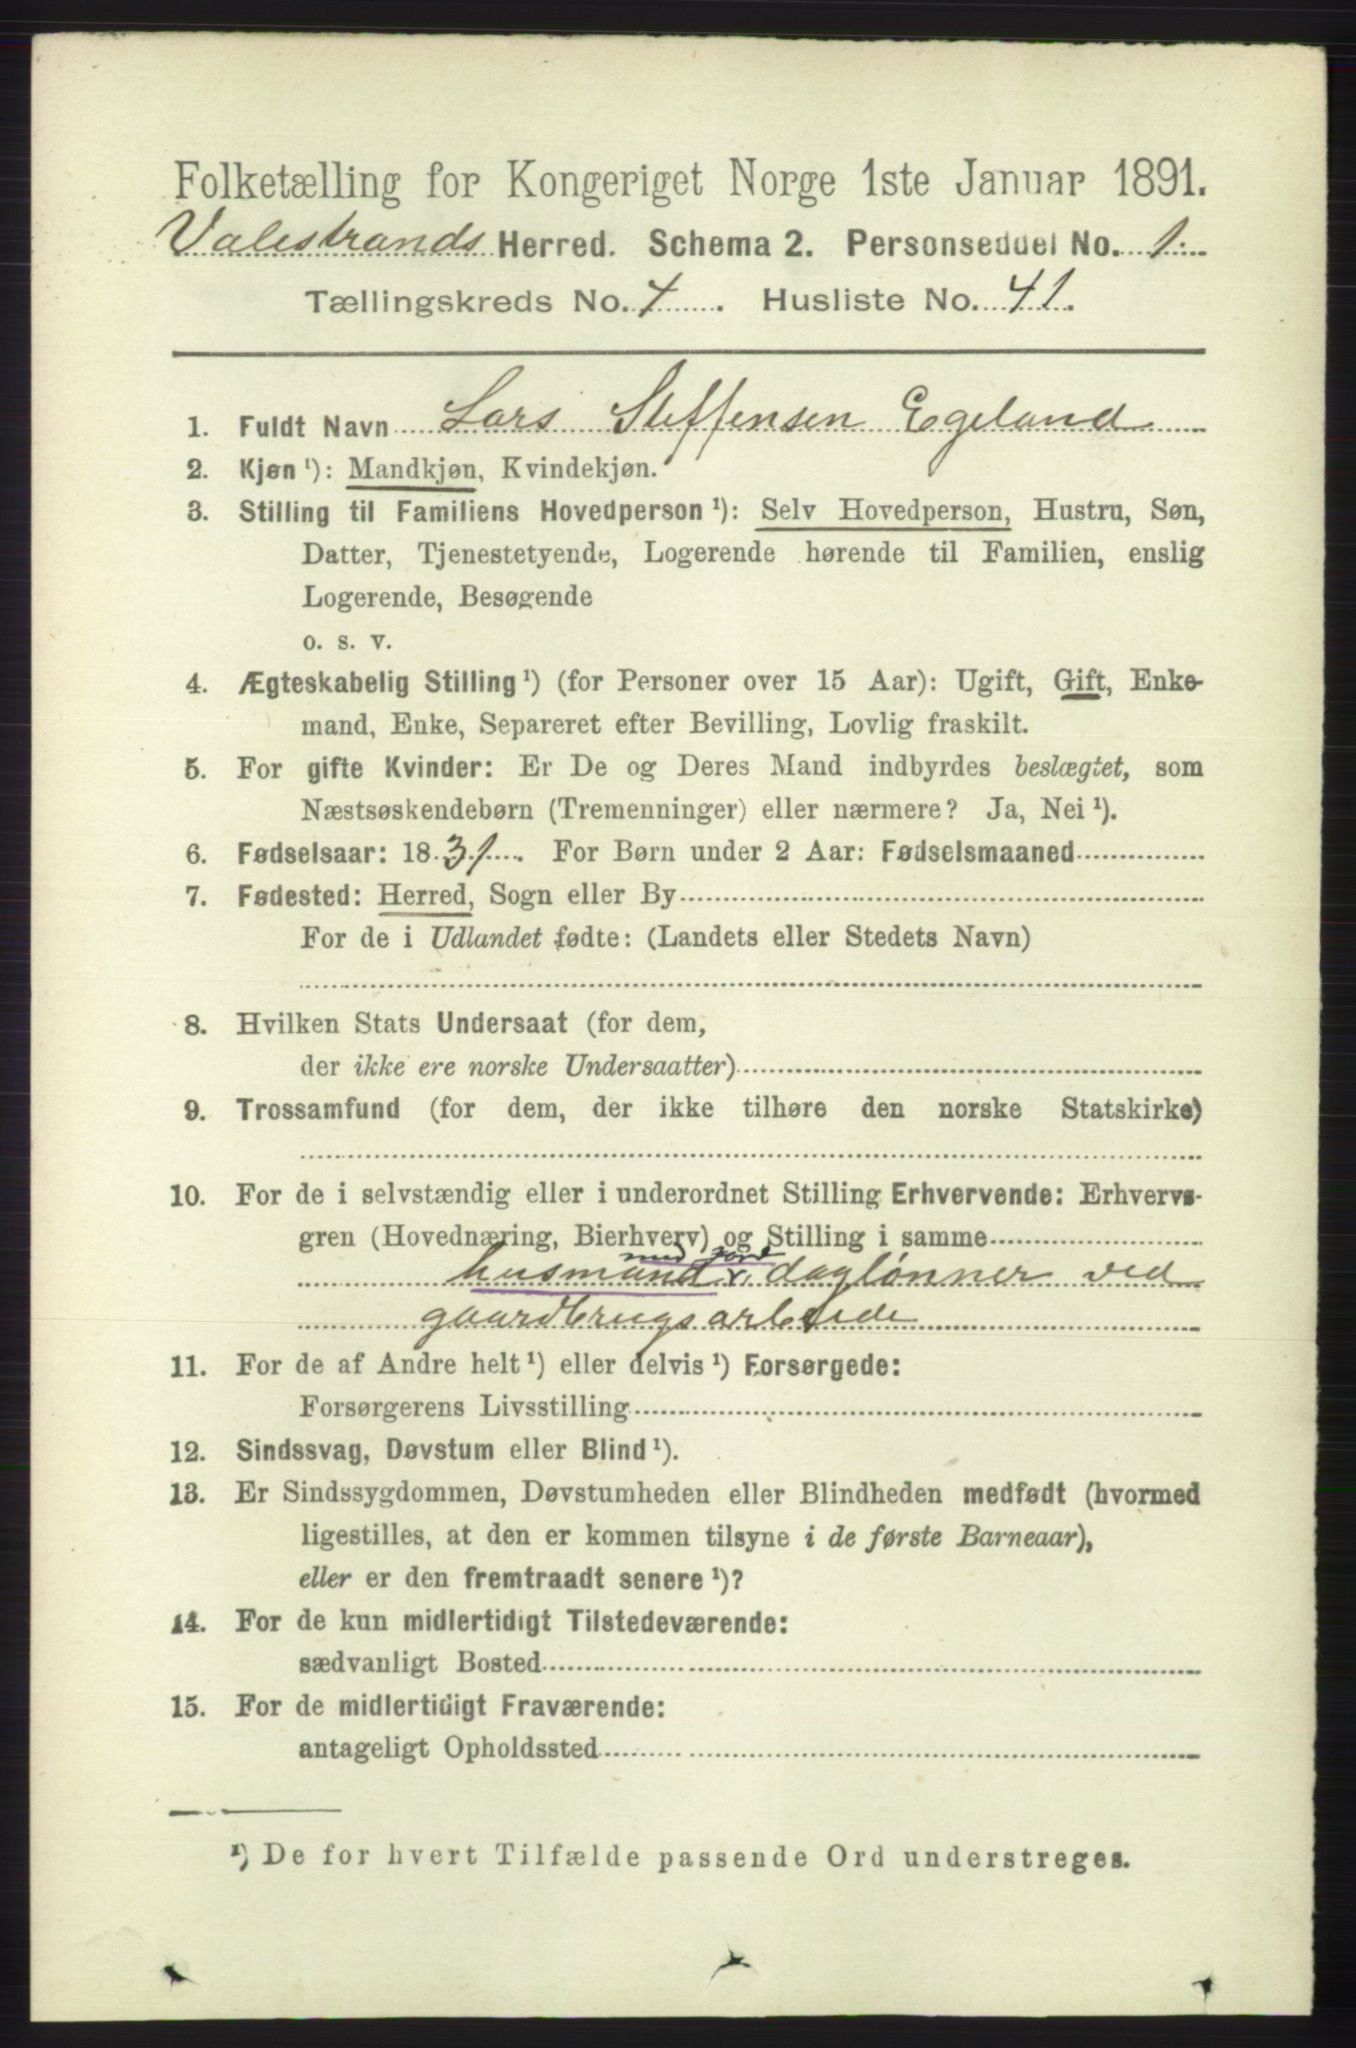 Folketælling for Kongeriget Norge 1ste Januar 1891.
Valestrands Herred. Schema 2. Personseddel No. 1.
Tællingskreds No. 4. Husliste No. 41.
1. Fuldt Navn Lars Steffensen Egeland
2. Kjøn ¹): Mandkjøn, Kvindekjøn.
3. Stilling til Familiens Hovedperson ¹): Selv Hovedperson, Hustru, Søn,
Datter, Tjenestetyende, Logerende hørende til Familien, enslig
Logerende, Besøgende
o. s. v.
4. Ægteskabelig Stilling ¹) (for Personer over 15 Aar): Ugift, Gift, Enke-
mand, Enke, Separeret efter Bevilling, Lovlig fraskilt.
5. For gifte Kvinder: Er De og Deres Mand indbyrdes beslægtet, som
Næstsøskendebørn (Tremenninger) eller nærmere? Ja, Nei ¹).
6. Fødselsaar: 1831. For Børn under 2 Aar: Fødselsmaaned
7. Fødested: Herred, Sogn eller By
For de i Udlandet fødte: (Landets eller Stedets Navn)
8. Hvilken Stats Undersaat (for dem,
der ikke ere norske Undersaatter)
9. Trossamfund (for dem, der ikke tilhøre den norske Statskirke)
10. For de i selvstændig eller i underordnet Stilling Erhvervende: Erhvervs-
gren (Hovednæring, Bierhverv) og Stilling i samme
med jord
husmand v. daglønner ved
gaardbrugsarbeide
11. For de af Andre helt ¹) eller delvis ¹) Forsørgede:
Forsørgerens Livsstilling
12. Sindssvag, Døvstum eller Blind ¹).
13. Er Sindssygdommen, Døvstumheden eller Blindheden medfødt (hvormed
ligestilles, at den er kommen tilsyne i de første Barneaar),
eller er den fremtraadt senere ¹)?
14. For de kun midlertidigt Tilstedeværende:
sædvanligt Bosted
15. For de midlertidigt Fraværende:
antageligt Opholdssted
¹) De for hvert Tilfælde passende Ord understreges.